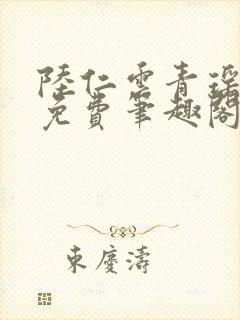 陸仁雲青瑶
免費筆趣閣
東慶濤